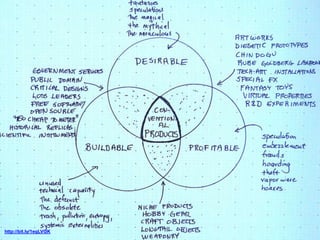 fantasies
speculations
The magical
the mythical
The miraculous
DESIRABLE
ARTWORKS
DIEGETIC PROTOTYPES
CHINDOGU
RUBE GOLDBERG
TECH-ART INSTALLATIONS
SPECIAL FX
FANTASY TOYS
VIRTUAL PROPERTIES
R&D EXPERIMENTS
GOVERNMENT SERVICES
PUBLIC DOMAIN
CRITICAL DESIGNS
LOSS LEADERS
FREE SOFTWARE
OPEN SOURCE
"TOO CHEAP TO METER"
HISTORICAL REPLICAS
SCIENTIFIC INSTRUMENTS
CON-
VENTION-
AL
PRODUCTS
BUILDABLE
PROFITABLE
speculation
embezzlement
frauds
hoarding
theft
vaporware
hoaxes
unused
technical capacity
The defunct
The obsolete
trash, pollution, entropy,
systemic externalities
NICHE PRODUCTS
HOBBY GEAR
CRAFT OBJECTS
LONGTAIL OBJECTS
WEAPONRY